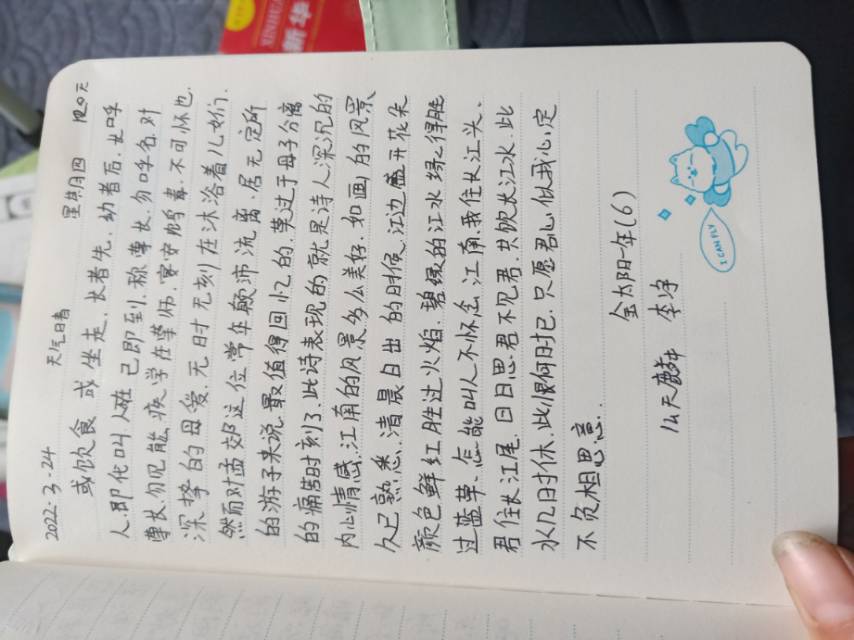 2022.3.24 天气日青 星期四 及0天
或饮食 或坐走. 长者先. 幼者后. 长呼
人. 即代叫 人难 己即到. 称尊长. 勿呼名. 对
尊长. 勿见能. 疾学在尊师. 宴安鸩毒. 不可怀也.
深挚的母爱. 无时无刻在沐浴着儿女们.
然而对孟郊这位常年颠沛流离. 居无定所
的游子来说. 最值得回忆的. 莫过于母子分离
的痛苦时刻了. 此诗表现的就是诗人深沉的
内心情感. 江南的风景多么美好. 如画的风景
久已熟悉. 清晨日出的时候. 江边盛开花朵
颜色鲜红胜过火焰. 碧绿的江水绿得胜
过蓝草. 怎能叫人不怀念江南. 我住长江头.
君住长江尾. 日日思君不见君. 共饮长江水. 此
水几时休. 此恨何时已. 只愿君心似我心. 定
不负相思意..
金太阳一年(6)
李宇
I CAN FLY
XINHUA
新华